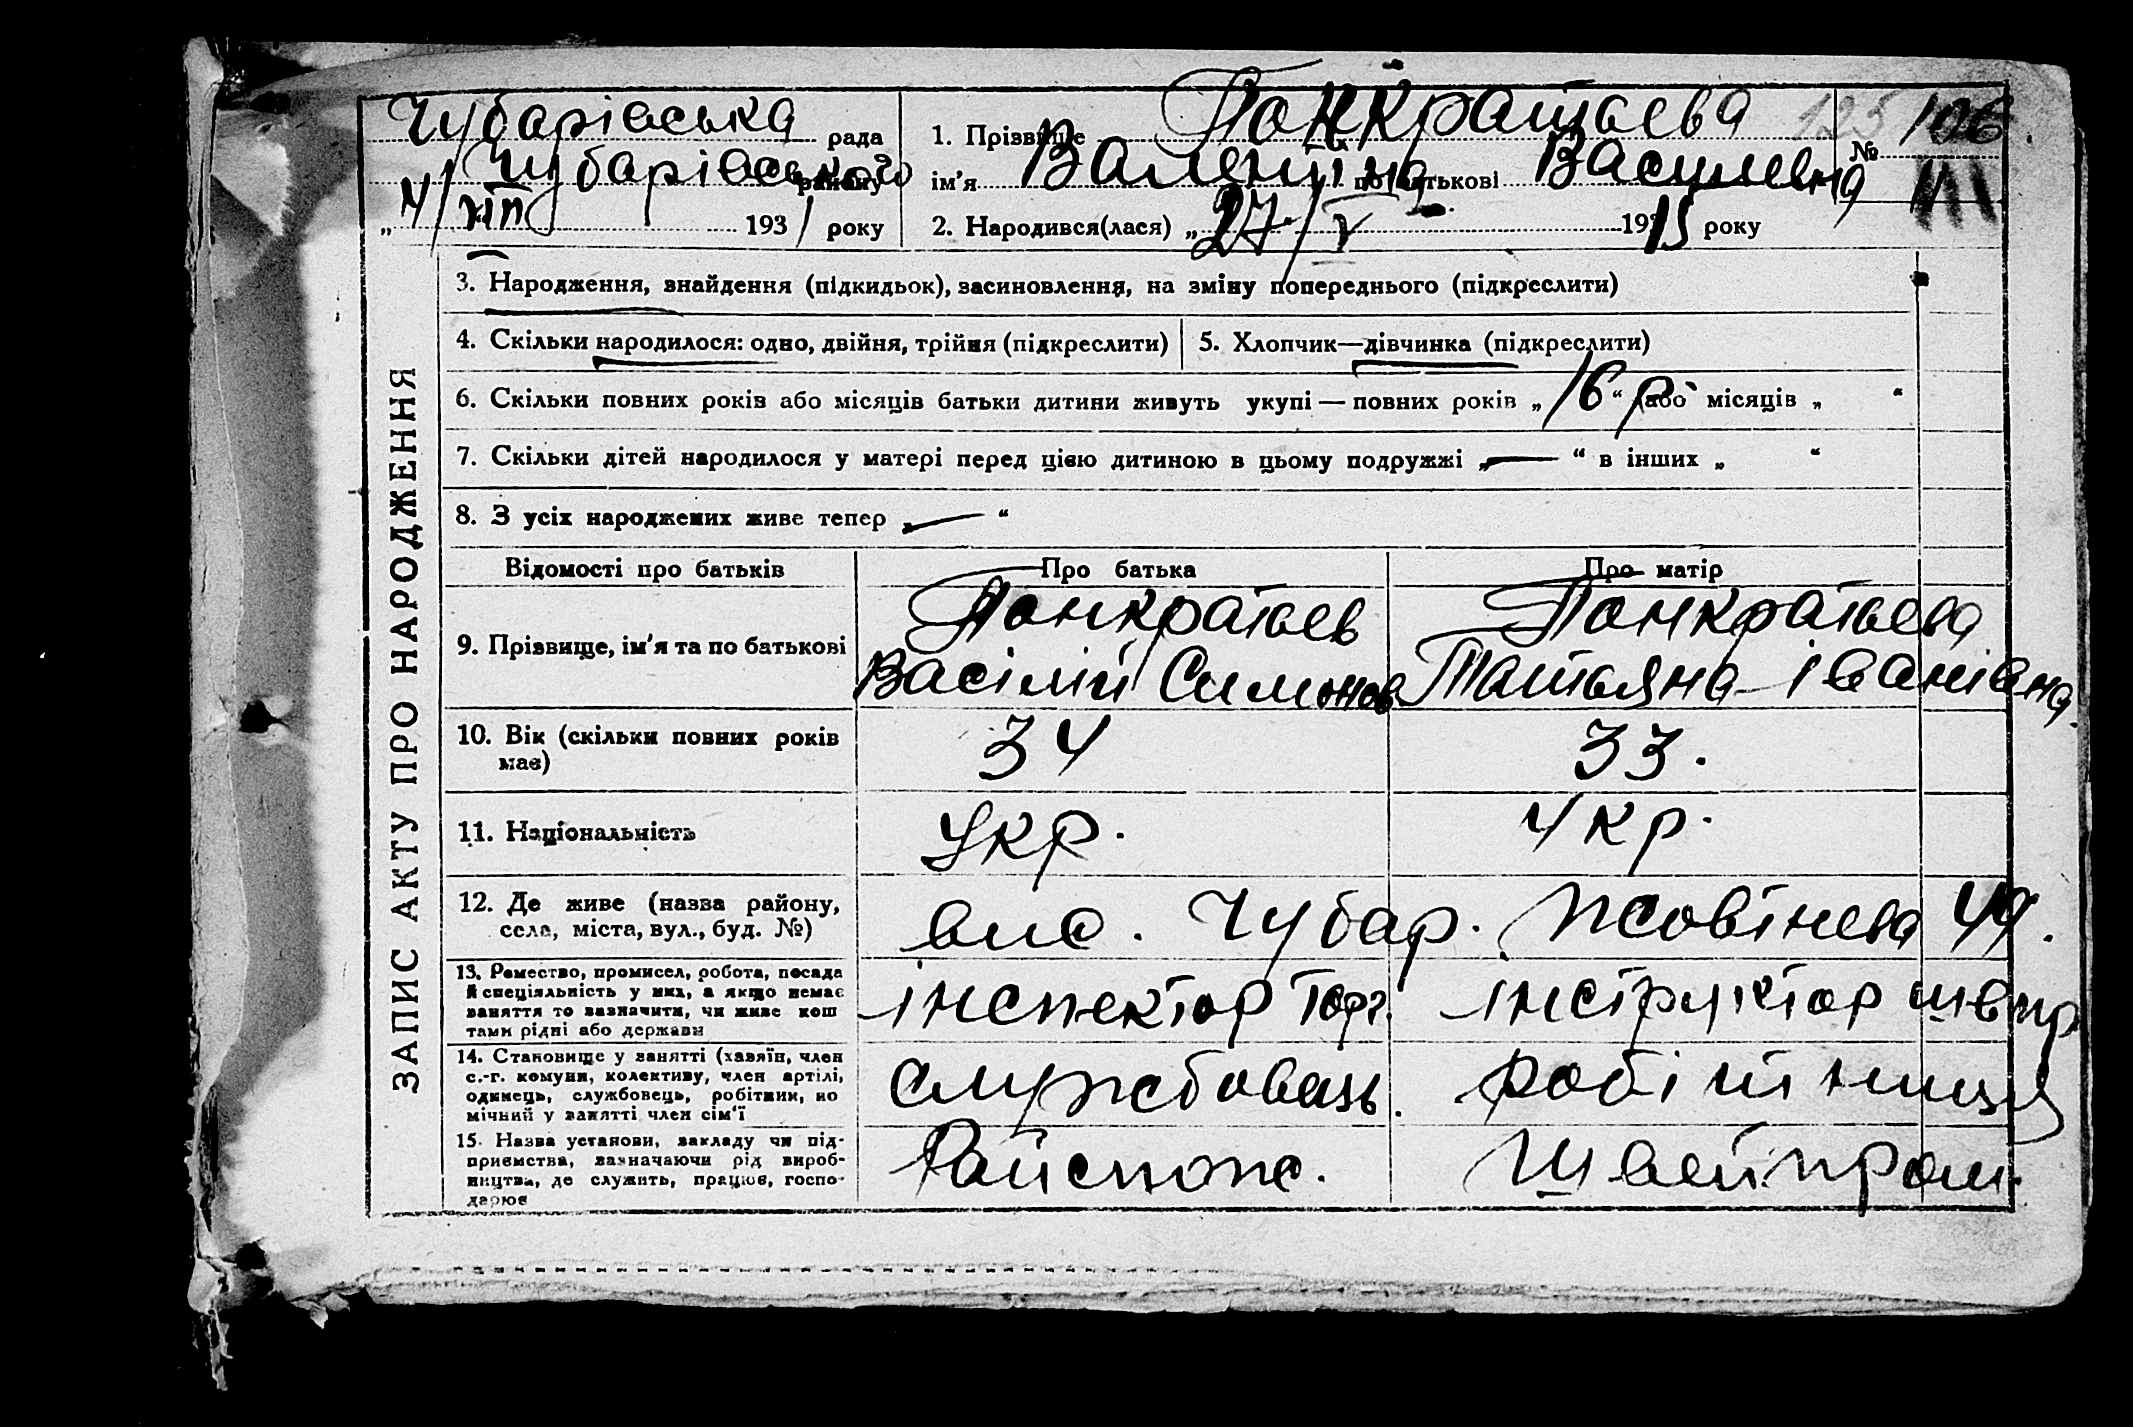 Чубарівська рада
Чубарівського району
„4/XII 1931 року
1. Прізвище Панкратьева
ім'я Валентина по батькові Василевна
№ 106
125
2. Народився(лася) „27/V 1915 року
ЗАПИС АКТУ ПРО НАРОДЖЕННЯ
3. Народження, знайдення (підкидьок), засиновлення, на зміну попереднього (підкреслити)
4. Скільки народилося: одно, двійня, трійня (підкреслити) 5. Хлопчик—дівчинка (підкреслити)
6. Скільки повних років або місяців батьки дитини живуть укупі — повних років „16“ р або місяців „ “
7. Скільки дітей народилося у матері перед цією дитиною в цьому подружжі „—“ в інших „ “
8. З усіх народжених живе тепер „—“
Відомості про батьків Про батька Про матір
9. Прізвище, ім'я та по батькові
Панкратьев Василій Симонов
Панкратьева Татьяна Іванівна
10. Вік (скільки повних років має) 34 33.
11. Національність Укр. Укр.
12. Де живе (назва району, села, міста, вул., буд. №)
вис. Чубар. Жовтнева 49.
13. Ремество, промисел, робота, посада
й спеціяльність у них, а якщо немає
заняття то зазначити, чи живе кош
тами рідні або держави
інспектор Торг. інструктор швпр
14. Становище у занятті (хазяїн, член
с.-г. комуни, колективу, член артілі,
одинець, службовець, робітник, по
мічний у занятті член сім'ї
службовець. робітниця
15. Назва установи, закладу чи під-
приємства, зазначаючи рід вироб-
ництва, де служить, працює, госпо-
дарює
Райспож. Швейпром.